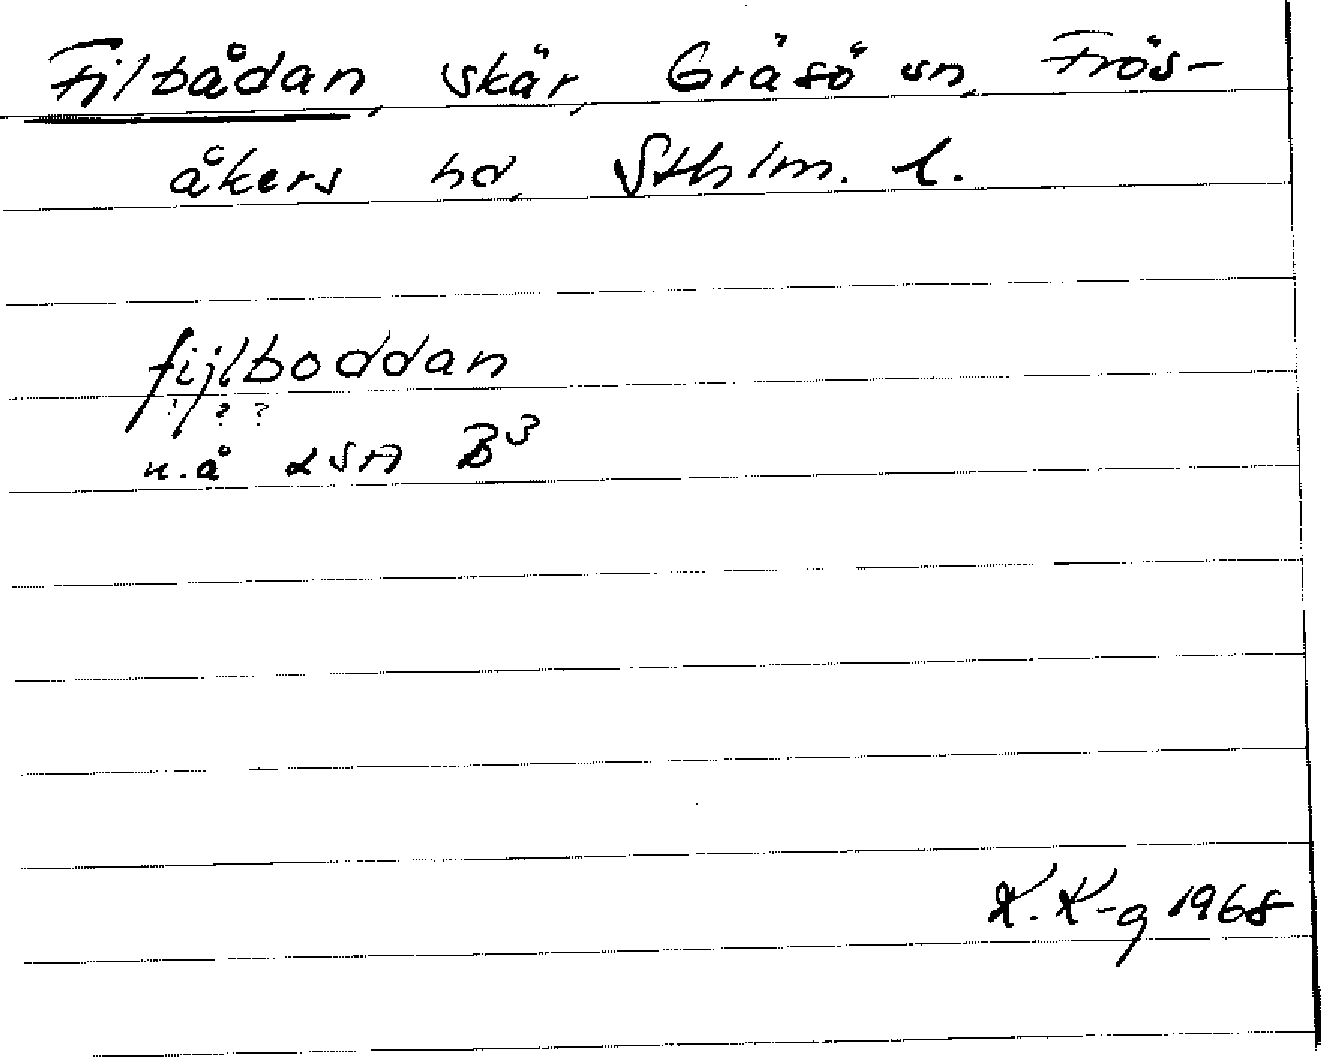 Fjlbådan, skär, Gräsö sn, Frös-
åkers hd, Sthlm. l.
fijlboddan
! ? ?
n.å LSA B³
K. K-g 1968